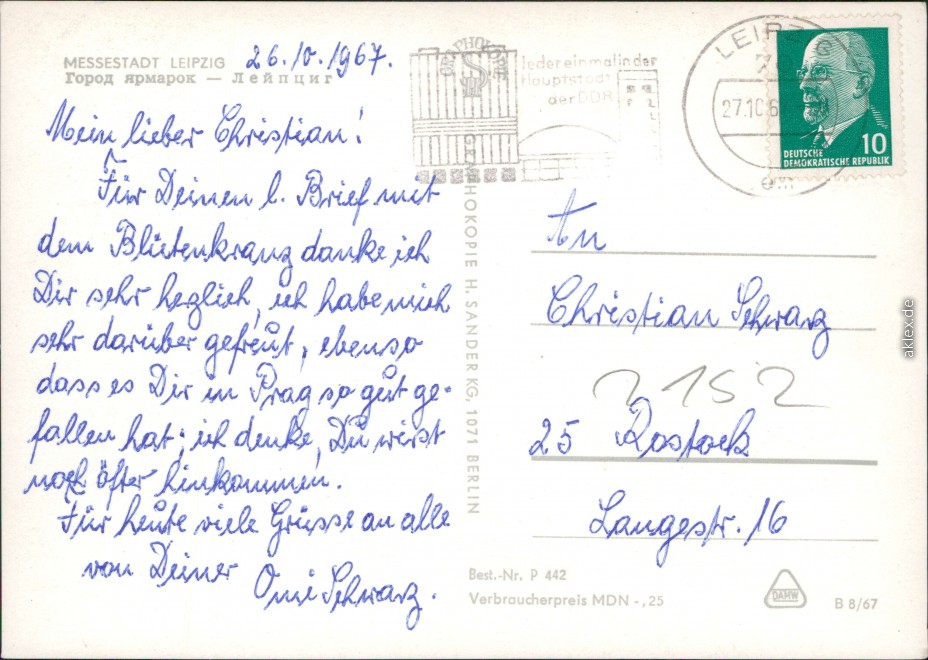 MESSESTADT LEIPZIG
Город ярмарок — Лейпциг
26.10.1967.
Mein lieber Christian!
Für Deinen l. Brief mit
dem Blütenkranz danke ich
Dir sehr herzlich, ich habe mich
sehr darüber gefreut, ebenso
dass es Dir in Prag so gut ge-
fallen hat; ich denke, Du wirst
noch öfter hinkommen.
Für heute viele Grüsse an alle
von Deiner
Omi Schwarz.
GRAPHOKOPIE
GRAPHOKOPIE H. SANDER KG, 1071 BERLIN
Jeder einmal in der
Hauptstadt
der DDR
LEIPZIG
27.10.6
DEUTSCHE
DEMOKRATISCHE REPUBLIK
10
An
Christian Schwarz
2152
25 Rostock
Langestr. 16
Best.-Nr. P 442
Verbraucherpreis MDN -,25
DAMW
B 8/67
aklex.de